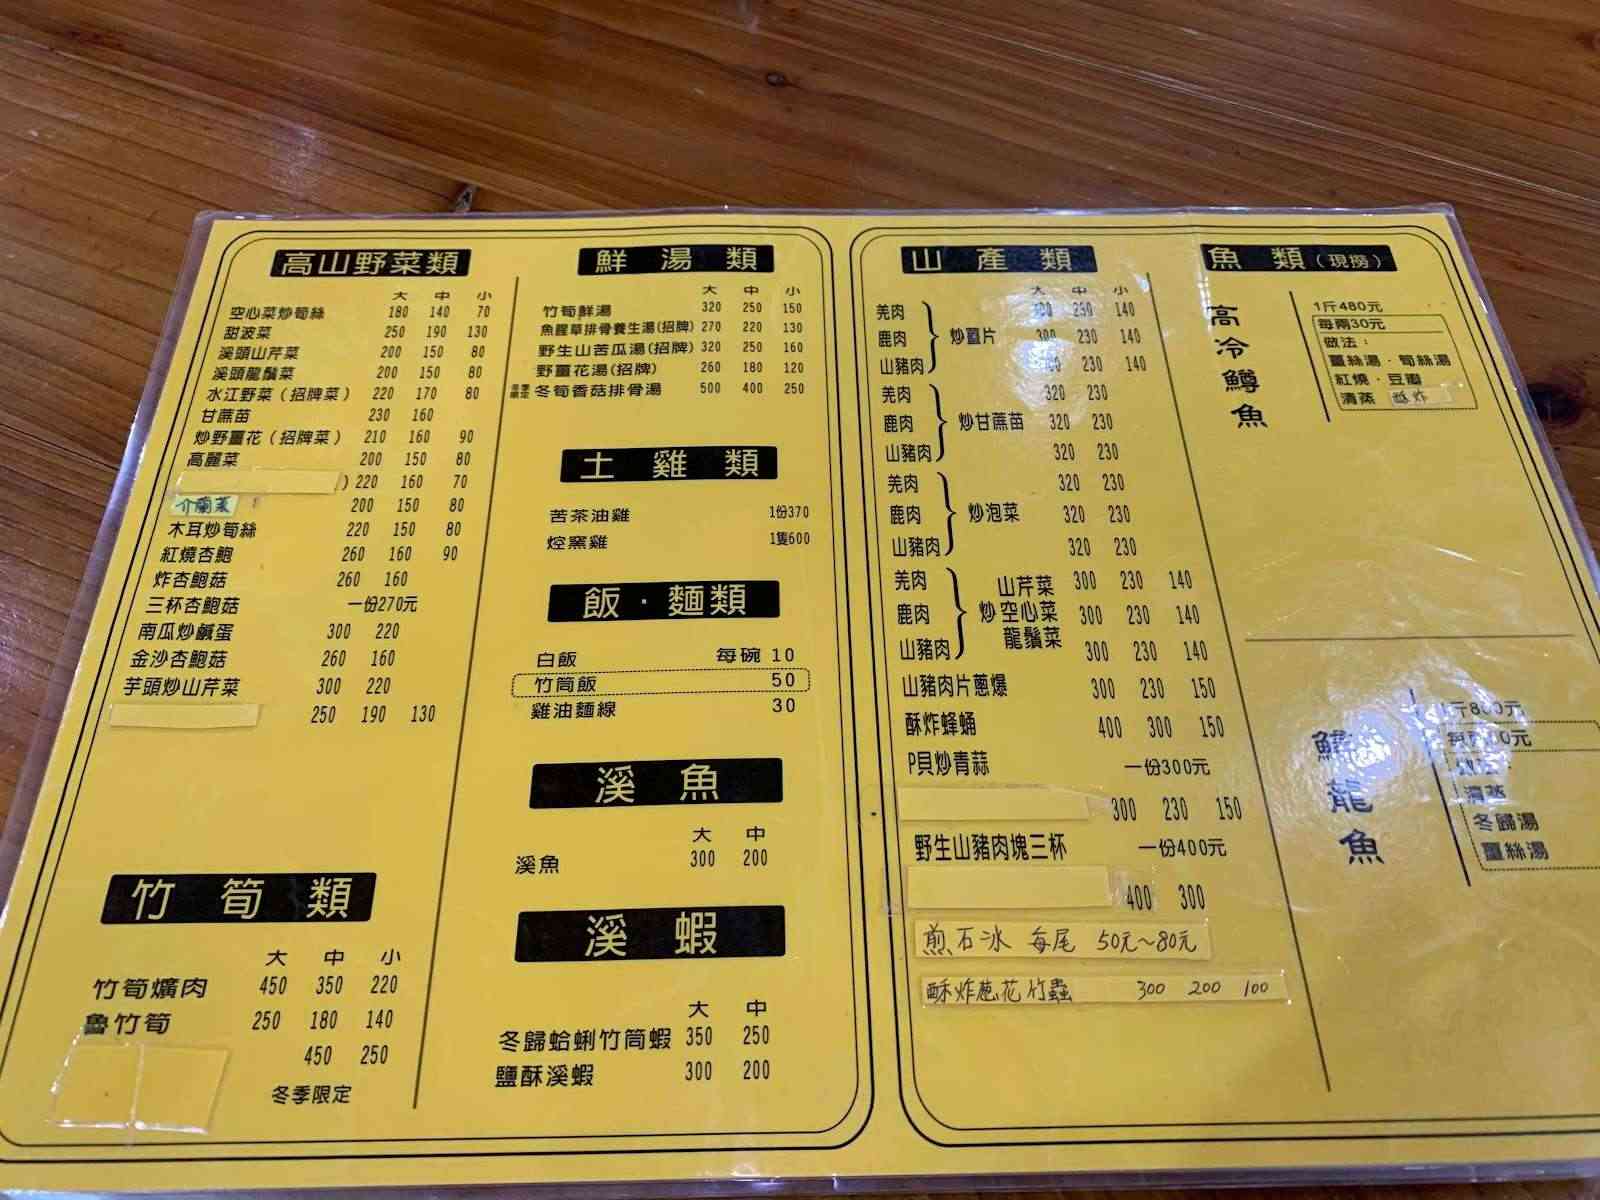 高山野菜類
大 中 小
空心菜炒筍絲 180 140 70
甜波菜 250 190 130
溪頭山芹菜 200 150 80
溪頭龍鬚菜 200 150 80
水江野菜(招牌菜) 220 170 80
甘蔗苗 230 160
炒野薑花(招牌菜) 210 160 90
高麗菜 200 150 80
) 220 160 70
介蘭菜 200 150 80
木耳炒筍絲 220 150 80
紅燒杏鮑 260 160 90
炸杏鮑菇 260 160
三杯杏鮑菇 一份270元
南瓜炒鹹蛋 300 220
金沙杏鮑菇 260 160
芋頭炒山芹菜 300 220
250 190 130
竹筍類
大 中 小
竹筍爌肉 450 350 220
魯竹筍 250 180 140
450 250
冬季限定
鮮湯類
大 中 小
竹筍鮮湯 320 250 150
魚腥草排骨養生湯(招牌) 270 220 130
野生山苦瓜湯(招牌) 320 250 160
野薑花湯(招牌) 260 180 120
冬季限定 冬筍香菇排骨湯 500 400 250
土雞類
苦茶油雞 1份370
焢窯雞 1隻600
飯·麵類
白飯 每碗 10
竹筒飯 50
雞油麵線 30
溪魚
大 中
溪魚 300 200
溪蝦
大 中
冬歸蛤蜊竹筒蝦 350 250
鹽酥溪蝦 300 200
山產類
大 中 小
羌肉 300 230 140
鹿肉 炒薑片 300 230 140
山豬肉 300 230 140
羌肉 320 230
鹿肉 炒甘蔗苗 320 230
山豬肉 320 230
羌肉 320 230
鹿肉 炒泡菜 320 230
山豬肉 320 230
羌肉 山芹菜 300 230 140
鹿肉 炒空心菜 300 230 140
山豬肉 龍鬚菜 300 230 140
山豬肉片蔥爆 300 230 150
酥炸蜂蛹 400 300 150
P貝炒青蒜 一份300元
300 230 150
野生山豬肉塊三杯 一份400元
400 300
煎石冰 每尾 50元~80元
酥炸蔥花竹蟲 300 200 100
魚類(現撈)
高冷鱒魚
1斤480元
每兩30元
做法:
薑絲湯·筍絲湯
紅燒·豆瓣
清蒸 酥炸
鱘龍魚
清蒸
冬歸湯
薑絲湯